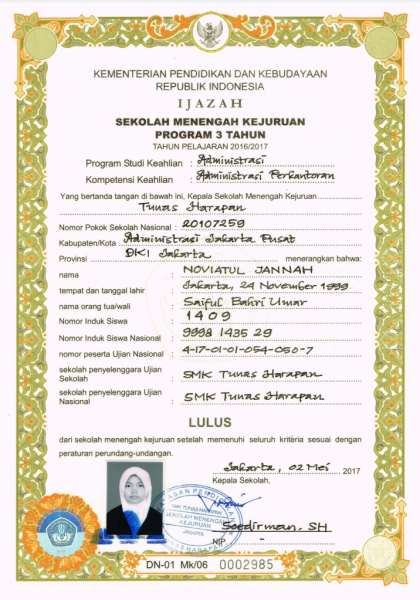 KEMENTERIAN PENDIDIKAN DAN KEBUDAYAAN
REPUBLIK INDONESIA
IJAZAH
SEKOLAH MENENGAH KEJURUAN
PROGRAM 3 TAHUN
TAHUN PELAJARAN 2016/2017
Program Studi Keahlian : Administrasi
Kompetensi Keahlian : Administrasi Perkantoran
Yang bertanda tangan di bawah ini, Kepala Sekolah Menengah Kejuruan
Tunas Harapan
Nomor Pokok Sekolah Nasional : 20107259
Kabupaten/Kota Administrasi Jakarta Pusat
Provinsi DKI Jakarta menerangkan bahwa:
nama NOVIATUL JANNAH
tempat dan tanggal lahir Jakarta, 24 November 1999
nama orang tua/wali Saiful Bahri Umar
Nomor Induk Siswa 1409
Nomor Induk Siswa Nasional 9998 1435 29
nomor peserta Ujian Nasional 4-17-01-01-054-050-7
sekolah penyelenggara Ujian
Sekolah SMK Tunas Harapan
sekolah penyelenggara Ujian
Nasional SMK Tunas Harapan
LULUS
dari sekolah menengah kejuruan setelah memenuhi seluruh kriteria sesuai dengan
peraturan perundang-undangan.
Jakarta, 02 Mei 2017
Kepala Sekolah,
SMK TUNAS HARAPAN
SEKOLAH MENENGAH
KEJURUAN
JAKARTA
Soedirman. SH
NIP
DN-01 Mk/06 0002985